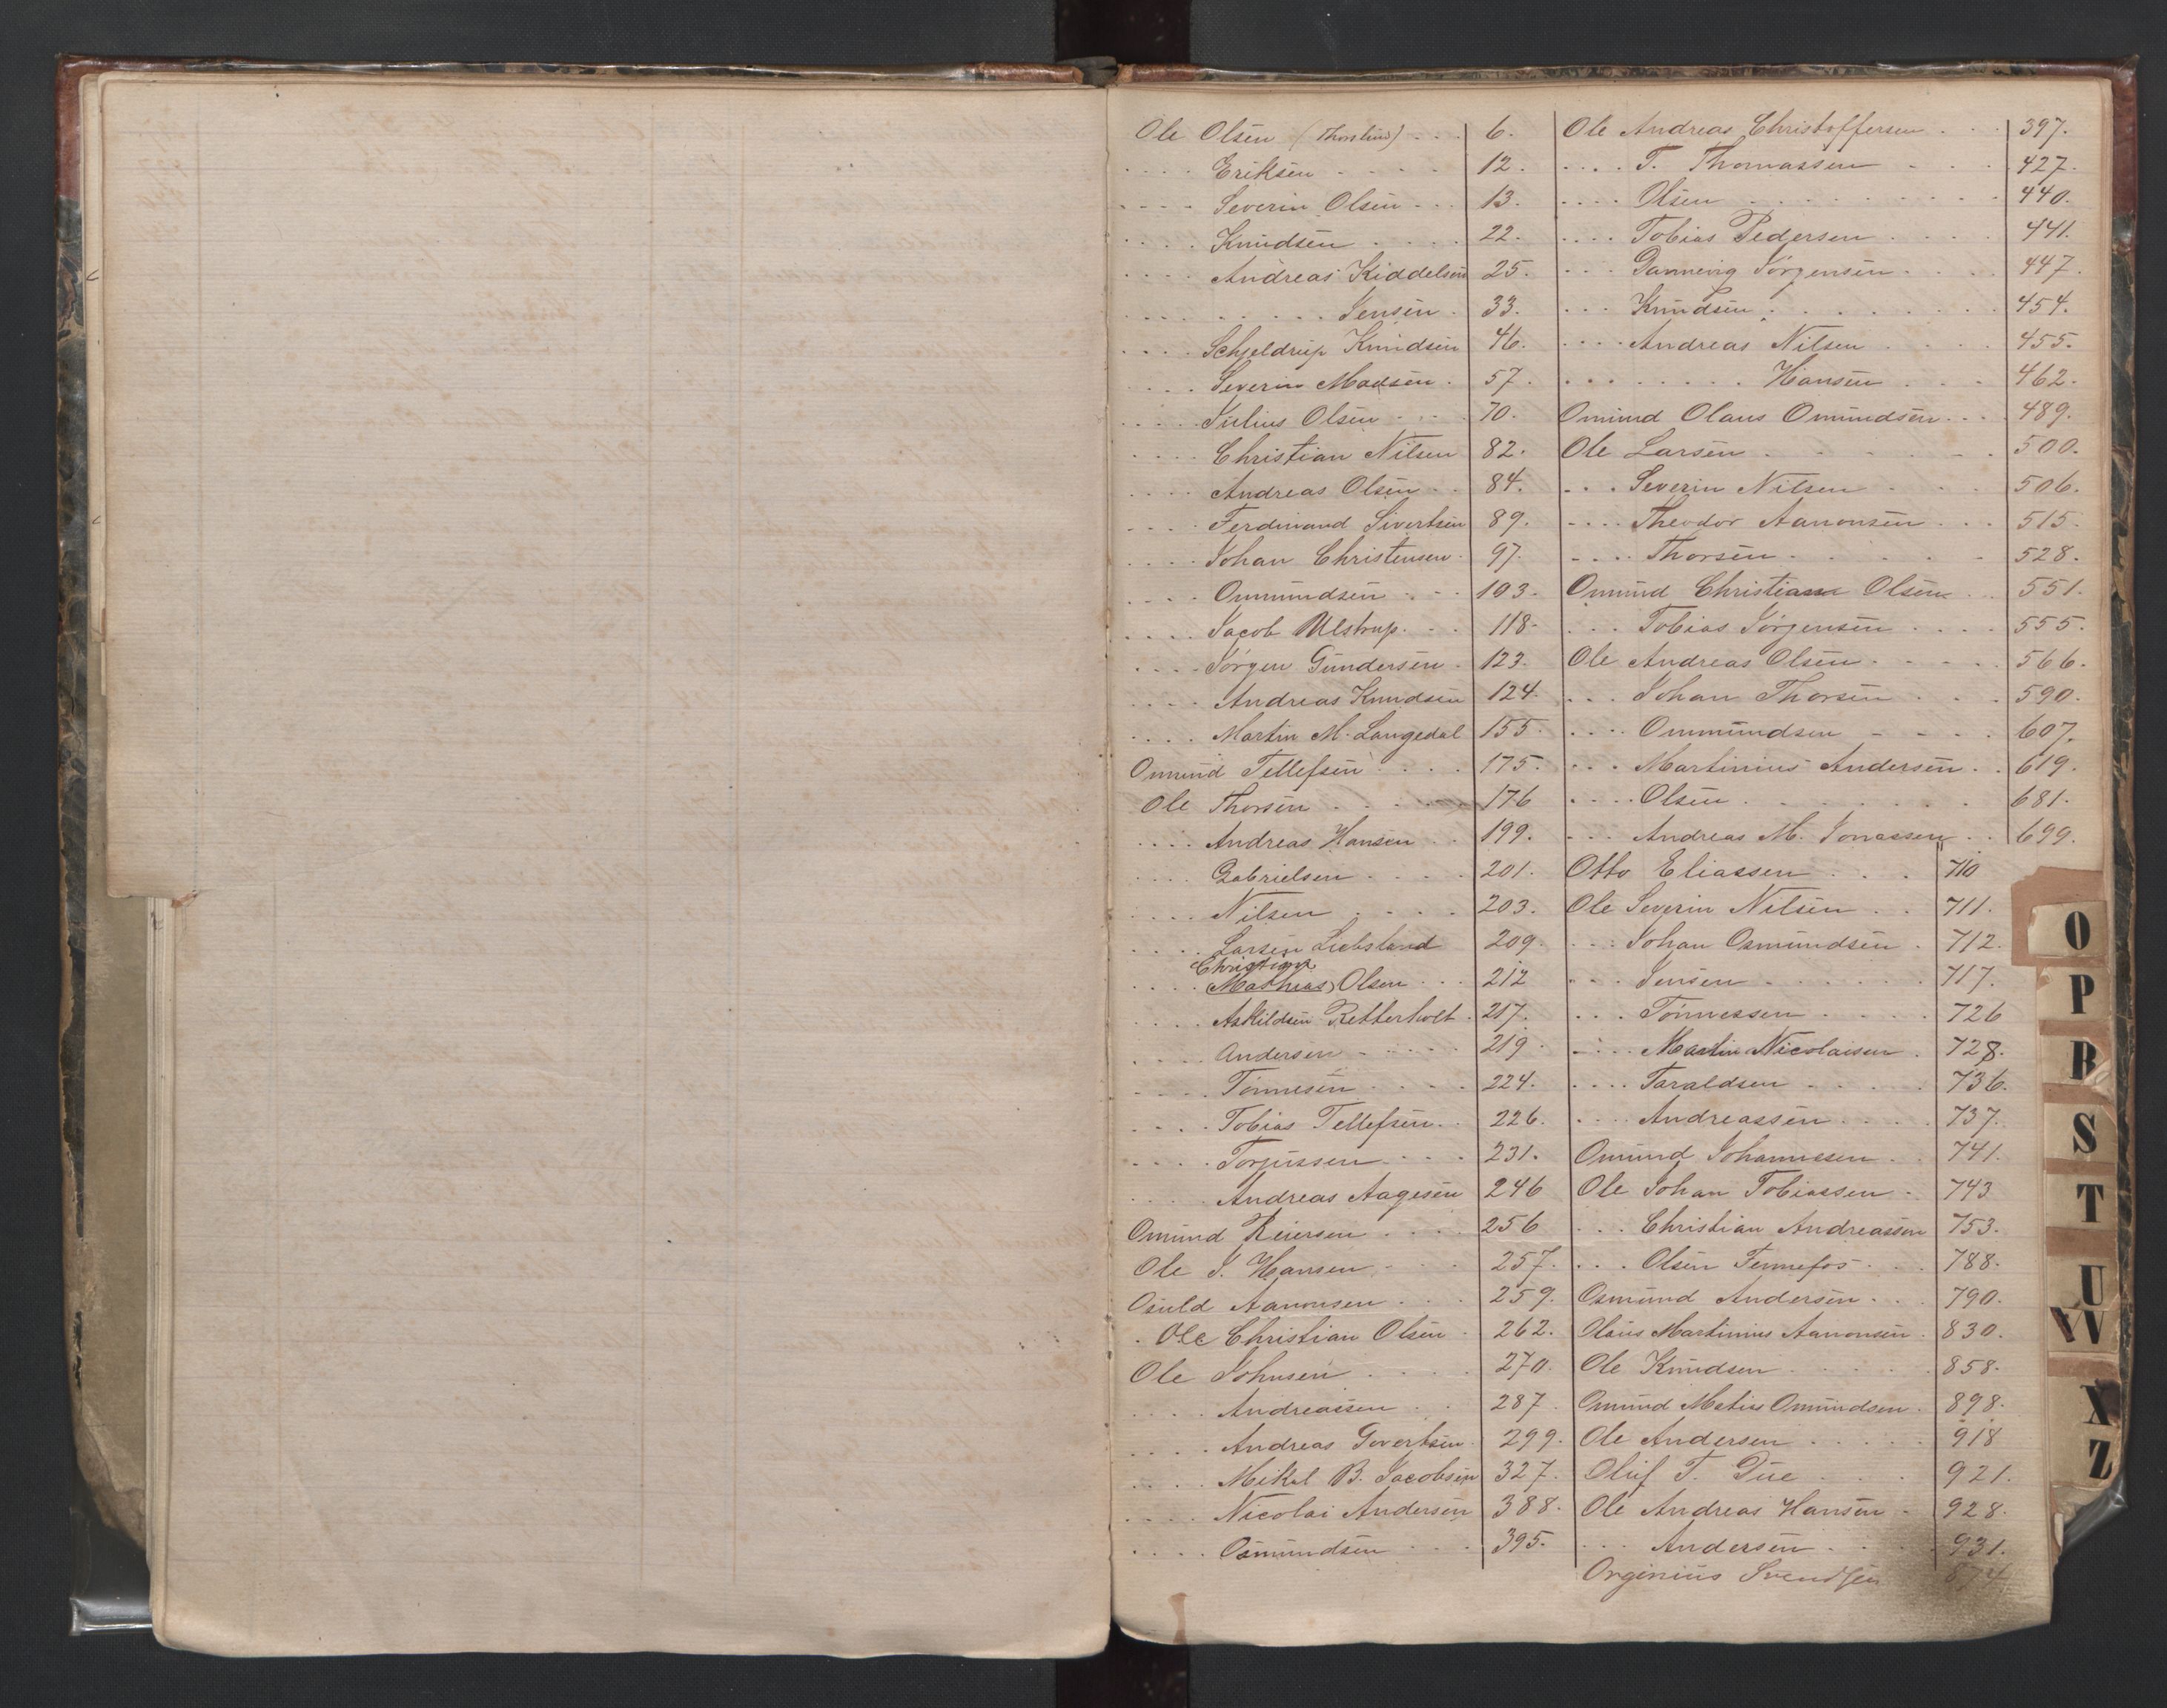 Ole Olsen (Thorslund) . . . 6.
. . . . Eriksen . . . . 12.
. . . . Severin Olsen . . . 13.
. . . . Knudsen . . . . 22.
. . . . Andreas Kiddelsen 25.
. . . . . . . . . Jensen . 33.
. . . . Schjeldrup Knudsen 46.
. . . . Severin Madsen . 57.
. . . . Julius Olsen . . . 70.
. . . . Christian Nilsen 82.
. . . . Andreas Olsen . . 84.
. . . . Ferdinand Sivertsen 89.
. . . . Johan Christensen . 97.
. . . . Ommundsen . . . 103.
. . . . Jacob Ulstrup . . . 118.
. . . . Jörgen Gundersen . 123.
. . . . Andreas Knudsen 124.
. . . . Martin M. Langedal 155.
Omund Tellefsen . . . . 175.
Ole Thorsen . . . . . 176
. . . . Andreas Hansen . . 199.
. . . . Gabrielsen . . . . 201.
. . . . Nilsen . . . . 203.
. . . . Larsen Liebsland 209.
Christian
. . . . (Mathias) Olsen . . . 212
. . . . Askildsen Retterholt . 217.
. . . . Andersen . . . . . 219.
. . . . Tönnesen . . . . 224.
. . . . Tobias Tellefsen . . 226.
. . . . Torjussen . . . . 231.
. . . . Andreas Aagesen 246
Omund Reiersen . . . . 256
Ole J. Hansen . . . 257.
Osuld Aanonsen . . . 259.
. Ole Christian Olsen . 262.
Ole Johnsen . . . . 270.
. . . . Andreassen . . 287.
. . . . Andreas Govertsen . 299.
. . . . Mikal B. Jacobsen 327.
. . . . Nicolai Andersen 388.
. . . . Osmundsen . . . 395.
Ole Andreas Christoffersen . . . 397.
. . . . T. Thomassen . . . 427.
. . . . Olsen . . . . . . . . 440.
. . . . Tobias Pedersen . . . . 441.
. . . Dannevig Jörgensen . . . . 447.
. . . Knudsen . . . . . . . 454.
. . . . Andreas Nilsen . . . . 455.
. . . . . . . . Hansen . . . 462.
Omund Olaus Omundsen . . . 489.
Ole Larsen . . . . . . . 500.
. . . Severin Nilsen . . . 506.
. . . . Theodor Aanonsen . . . 515.
. . . . Thorsen . . . . . 528.
Omund Christian Olsen . . 551.
. . . Tobias Jörgensen . . . . 555.
Ole Andreas Olsen . . . . . 566.
. . . Johan Thorsen . . . 590.
. . . . Ommundsen . . . . 607.
. . . Martinius Andersen . . 619.
. . . . Olsen . . . . . . . 681.
. . . Andreas M. Jonassen . . 699.
Otto Eliassen . . . 710
Ole Severin Nilsen . . 711.
. . . Johan Osmundsen . 712.
. . . Jensen . . . . . . 717.
. . . Tönnessen . . . . 726
. . . . Martin Nicolaisen . 728.
. . . . Taraldsen . . . . . 736.
. . . . Andreassen . . . . 737.
Omund Johannessen . . 741.
Ole Johan Tobiassen . 743.
. . . Christian Andreassen 753.
. . . Olsen Fennefos . . . 788.
Osmund Andersen . . . 790.
Olaus Martinius Aanonsen . 830.
Ole Knudsen . . . . . . 858.
Omund Matius Omundsen . 898.
Ole Andersen . . . . . 918
Oluf T. Due . . . . 921.
Ole Andreas Hansen . 928.
. . . Andersen . . . . 931.
Orginius Svendsen 874
O
P
R
S
T
U
VW
X
Z